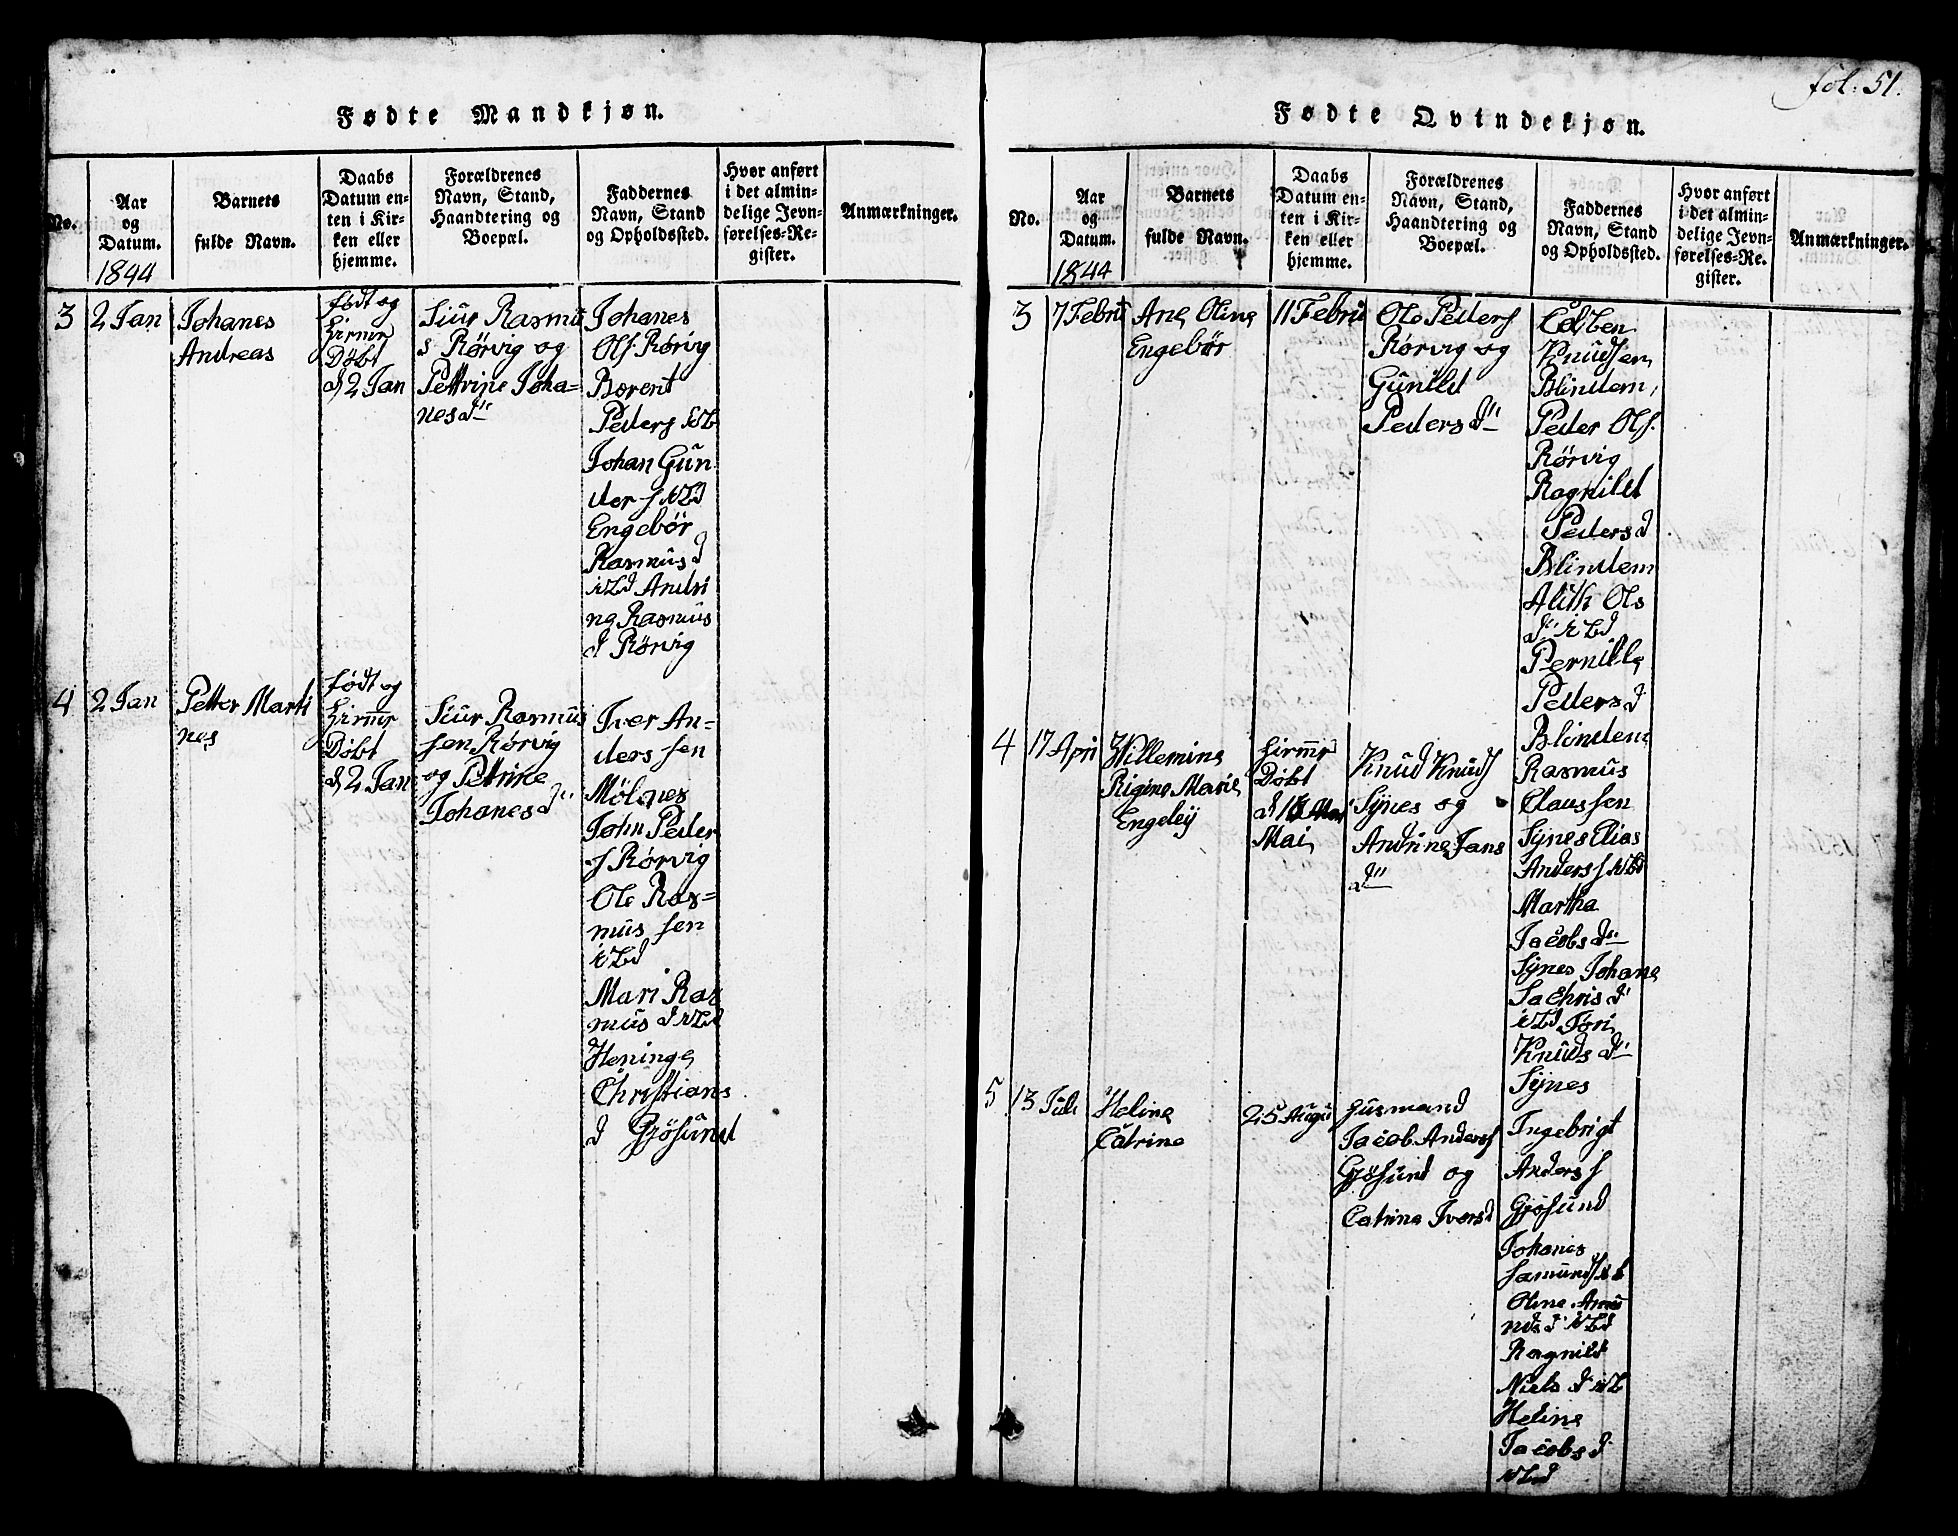 fol: 51.
Fødte Mandkjøn.
No.
Aar
og
Datum.
1844
Barnets
fulde Navn.
Daabs
Datum en-
ten i Kir-
ken eller
hjemme.
Forældrenes
Navn, Stand,
Haandtering og
Boepæl.
Faddernes
Navn, Stand
og Opholdssted.
Hvor anført
i det almin-
delige Jevn-
førelses-Re-
gister.
Anmærkninger.
3
2 Jan
Johanes
Andreas
født og
Døbt
d 2 Jan
Siur Rasmu
s Rörvig og
Pettrine Joha=
nesd
Johanes
Ols. Rörvig
Berent
Peders
Johan Gun
der s
Engebör
Rasmus d
Andri
ne Rasmus
d Rörvig
4
2 Jan
Petter Marti
nes
født og
Døbt
d 2 Jan
Siur Rasmus
sen Rörvig
og Pettrine
Johanesd
Iver An=
ders sen
Mölnes
John Peder
s Rörvig
Ole Ras=
mus sen
Mari Ras
mus d
Heninge
Christians
d Gjösund
Fødte Qvindekjøn.
No.
Aar
og
Datum.
1844
Barnets
fulde Navn.
Daabs
Datum en-
ten i Kir-
ken eller
hjemme.
Forældrenes
Navn, Stand,
Haandtering og
Boepæl.
Faddernes
Navn, Stand
og Opholdssted.
Hvor anført
i det almin-
delige Jevn-
førelses-Re-
gister.
Anmærkninger.
3
7 Febru
Ane Oline
Engebör
11 Febru
Ole Peders
Rörvig og
Gunild
Pedersd
Knudsen
Blindem
Peder Ols.
Rörvig
Ragnild
Pedersd
Blindem
Alith Ols
d
Pernille
Pedersd
Blindem
4
17 Apri
Willemine
Rigine Marie
Engeley
Døbt
Mai
Knud Knuds
Synes og
Andrine Jans
d
Rasmus
Claussen
Synes Elias
Anders s
Martha
Jacobs d
Synes Johane
Knuds d
Synes
5
13 Juli
Heline
Catrine
25 Augu
Husmand
Jacob Anders s
Gjösund og
Catrine Iversd
Ingebrigt
Anders s
Gjösund
Johanes
Oline
Ragnild
Niels d
Heline
Jacobs d